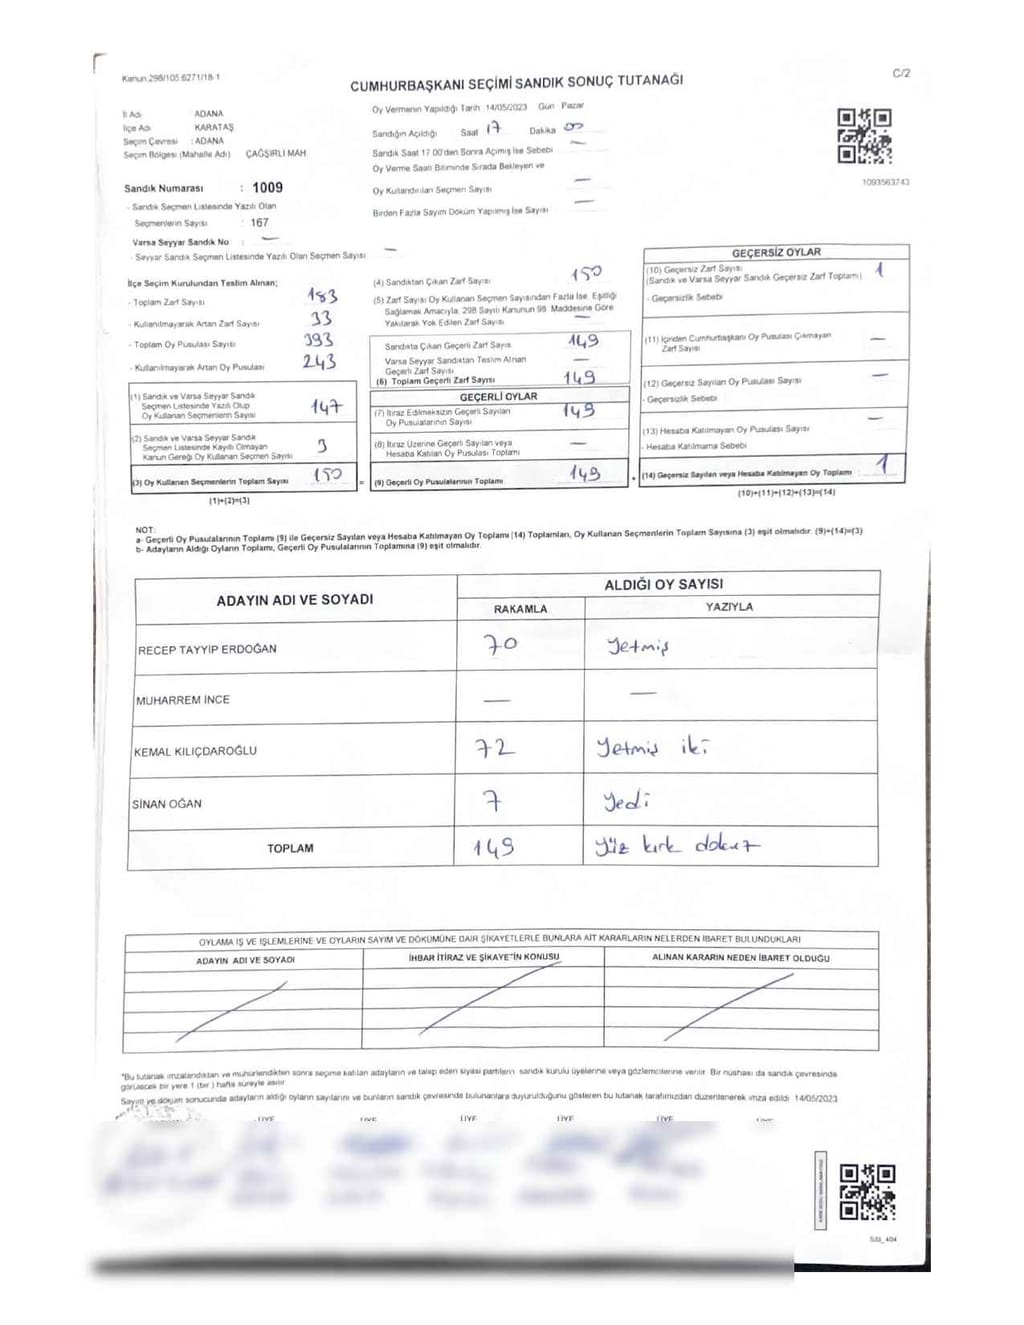 Kanun.298/105.6271/18-1
C/2
CUMHURBAŞKANI SEÇİMİ SANDIK SONUÇ TUTANAĞI
İl Adı ADANA
İlçe Adı KARATAŞ
Seçim Çevresi : ADANA
Seçim Bölgesi (Mahalle Adı) ÇAĞŞIRLI MAH
Sandık Numarası : 1009
- Sandık Seçmen Listesinde Yazılı Olan
Seçmenlerin Sayısı : 167
Varsa Seyyar Sandık No : —
- Seyyar Sandık Seçmen Listesinde Yazılı Olan Seçmen Sayısı —
Oy Vermenin Yapıldığı Tarih 14/05/2023 Gün Pazar
Sandığın Açıldığı Saat 17 Dakika 00
Sandık Saat 17 00'den Sonra Açımış İse Sebebi —
Oy Verme Saati Bitiminde Sırada Bekleyen ve
Oy Kullandırılan Seçmen Sayısı —
Birden Fazla Sayım Döküm Yapılmış İse Sayısı —
1093563743
İlçe Seçim Kurulundan Teslim Alınan;
- Toplam Zarf Sayısı 183
- Kullanılmayarak Artan Zarf Sayısı 33
- Toplam Oy Pusulası Sayısı 393
- Kullanılmayarak Artan Oy Pusulası 243
(1) Sandık ve Varsa Seyyar Sandık
Seçmen Listesinde Yazılı Olup
Oy Kullanan Seçmenlerin Sayısı 147
(2) Sandık ve Varsa Seyyar Sandık
Seçmen Listesinde Kayıtlı Olmayan
Kanun Gereği Oy Kullanan Seçmen Sayısı 3
(3) Oy Kullanan Seçmenlerin Toplam Sayısı 150
(1)+(2)=(3)
(4) Sandıktan Çıkan Zarf Sayısı 150
(5) Zarf Sayısı Oy Kullanan Seçmen Sayısından Fazla İse, Eşitliği
Sağlamak Amacıyla, 298 Sayılı Kanunun 98 Maddesine Göre
Yakılarak Yok Edilen Zarf Sayısı —
Sandıkta Çıkan Geçerli Zarf Sayısı 149
Varsa Seyyar Sandıktan Teslim Alınan
Geçerli Zarf Sayısı —
(6) Toplam Geçerli Zarf Sayısı 149
GEÇERLİ OYLAR
(7) İtiraz Edilmeksizin Geçerli Sayılan
Oy Pusulalarının Sayısı 149
(8) İtiraz Üzerine Geçerli Sayılan veya
Hesaba Katılan Oy Pusulası Toplamı —
= (9) Geçerli Oy Pusulalarının Toplamı 149
GEÇERSİZ OYLAR
(10) Geçersiz Zarf Sayısı 1
(Sandık ve Varsa Seyyar Sandık Geçersiz Zarf Toplamı)
- Geçersizlik Sebebi
(11) İçinden Cumhurbaşkanı Oy Pusulası Çıkmayan
Zarf Sayısı —
(12) Geçersiz Sayılan Oy Pusulası Sayısı —
- Geçersizlik Sebebi
(13) Hesaba Katılmayan Oy Pusulası Sayısı —
- Hesaba Katılmama Sebebi
+ (14) Geçersiz Sayılan veya Hesaba Katılmayan Oy Toplamı 1
(10)+(11)+(12)+(13)=(14)
NOT:
a- Geçerli Oy Pusulalarının Toplamı (9) ile Geçersiz Sayılan veya Hesaba Katılmayan Oy Toplamı (14) Toplamları, Oy Kullanan Seçmenlerin Toplam Sayısına (3) eşit olmalıdır. (9)+(14)=(3)
b- Adayların Aldığı Oyların Toplamı, Geçerli Oy Pusulalarının Toplamına (9) eşit olmalıdır.
ADAYIN ADI VE SOYADI
ALDIĞI OY SAYISI
RAKAMLA YAZIYLA
RECEP TAYYİP ERDOĞAN 70 yetmiş
MUHARREM İNCE — —
KEMAL KILIÇDAROĞLU 72 yetmiş iki
SİNAN OĞAN 7 yedi
TOPLAM 149 yüz kırk dokuz
OYLAMA İŞ VE İŞLEMLERİNE VE OYLARIN SAYIM VE DÖKÜMÜNE DAİR ŞİKAYETLERLE BUNLARA AİT KARARLARIN NELERDEN İBARET BULUNDUKLARI
ADAYIN ADI VE SOYADI İHBAR İTİRAZ VE ŞİKAYETİN KONUSU ALINAN KARARIN NEDEN İBARET OLDUĞU
*Bu tutanak imzalandıktan ve mühürlendikten sonra seçime katılan adayların ve talep eden siyasi partilerin sandık kurulu üyelerine veya gözlemcilerine verilir. Bir nüshası da sandık çevresinde
görülecek bir yere 1 (bir) hafta süreyle asılır.
Sayım ve döküm sonucunda adayların aldığı oyların sayılarını ve bunların sandık çevresinde bulunanlara duyurulduğunu gösteren bu tutanak tarafımızdan düzenlenerek imza edildi 14/05/2023
ÜYE ÜYE ÜYE ÜYE ÜYE ÜYE